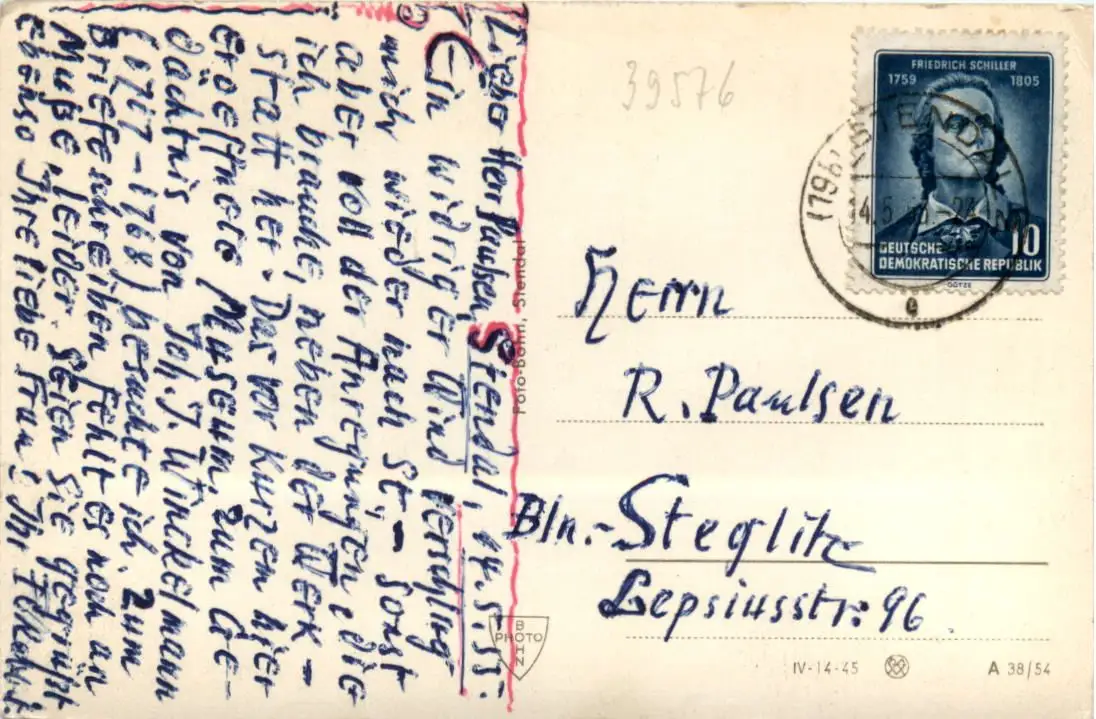 Lieber Herr Paulsen, Stendal, 14.5.55.
Ein widriger Wind verschlug
mich wieder nach St. - sonst
aber voll der Anregungen, die
ich brauche, neben der Werk-
statt her. Das vor kurzem hier
eroeffnete Museum, zum Ge-
dächtnis von Joh. J. Winckelmann
(1717-1768) besuchte ich. Zum
Briefeschreiben fehlt es noch an
Muße, leider. Seien Sie gegrüßt
ebenso Ihre liebe Frau! Ihr
Foto-Bohn, Stendal
BOHN
PHOTO
39576
FRIEDRICH SCHILLER
1759 1805
10
DEUTSCHE
DEMOKRATISCHE REPUBLIK
GÖTZE
STENDAL
14.5.
e
Herrn
R. Paulsen
Bln.-Steglitz
Lepsiusstr. 96
IV-14-45 A 38/54